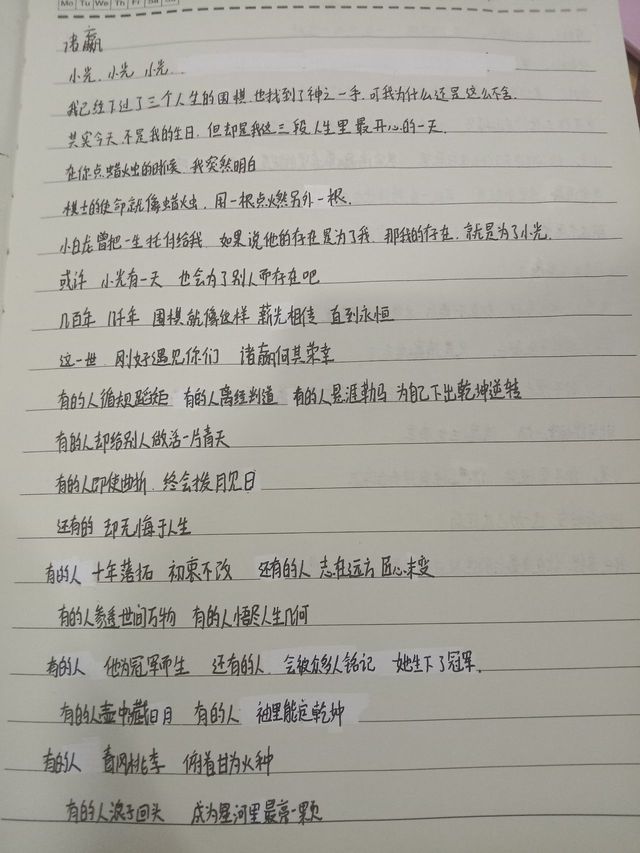 Mo Tu We Th Fr Sa Su
诸赢
小光、小光、小光
我已经下过了三个人生的围棋.也找到了神之一手.可我为什么还是这么不舍.
其实今天.不是我的生日.但却是我这三段人生里最开心的一天.
在你点蜡火虫的时候 我突然明白
棋士的使命就像蜡火虫.用一根点燃另外一根.
小白龙曾把一生托付给我 如果说他的存在是为了我.那我的存在.就是为了小光.
或许 小光有一天 也会为了别人而存在吧
几百年 几千年 围棋就像这样 薪光相传 直到永恒
这一世 刚好遇见你们 诸赢何其荣幸
有的人循规蹈矩 有的人离经判道 有的人悬涯勒马 为自己下出乾坤逆转
有的人却给别人做活一片青天
有的人即使曲折.终会拨月见日
还有的 却无悔于人生
有的人 十年落拓 初衷不改 还有的人 志在远方 匠心未变
有的人参透世间万物 有的人悟尽人生几何
有的人 他为冠军而生 还有的人 会被众多人铭记 她生下了冠军.
有的人壶中藏日月 有的人 袖里能定乾坤
有的人 春风桃李 俯首甘为火种
有的人浪子回头 成为星河里最亮一颗